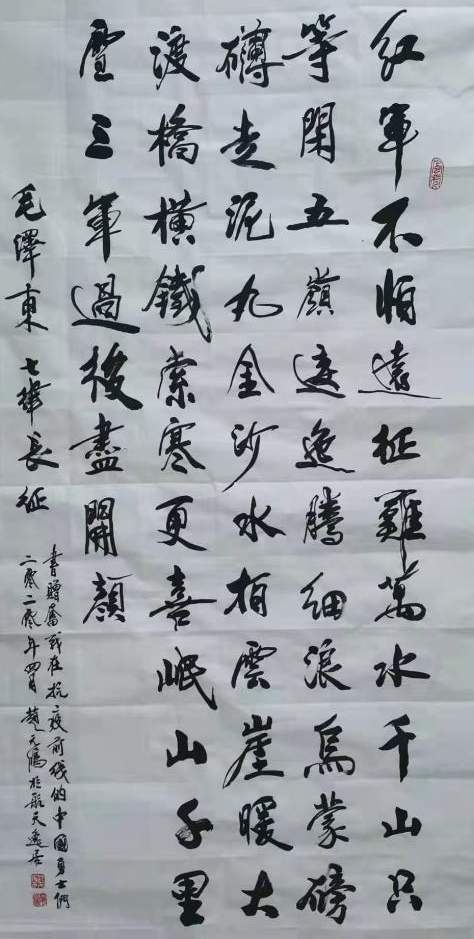 紅軍不怕遠征難萬水千山只
等閑五嶺逶迤騰細浪烏蒙磅
礴走泥丸金沙水拍雲崖暖大
渡橋橫鐵索寒更喜岷山千里
雪三軍過後盡開顏
毛澤東七律長征
書贈奮戰在抗疫前线的中國勇士們
二零二零年四月趙元鴻於航天逸居